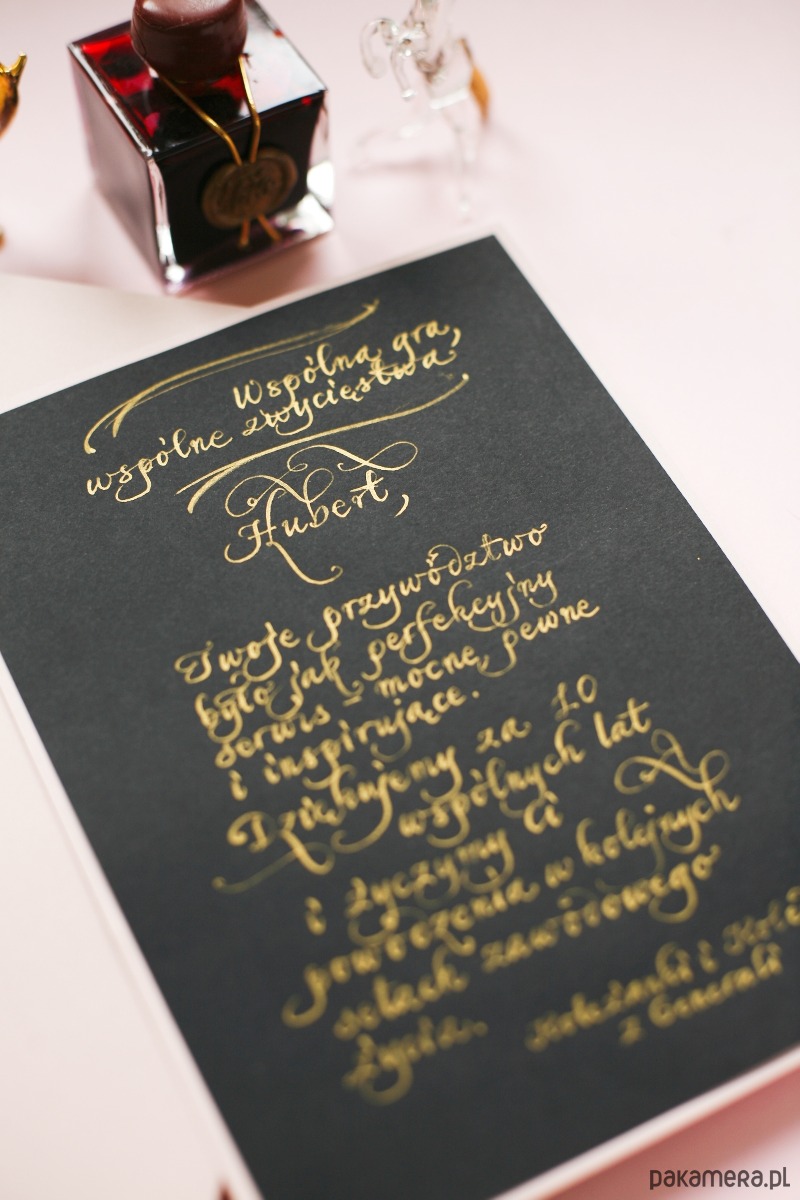 Wspólna gra,
wspólne zwycięstwa
Hubert,
Twoje przywództwo
było jak perfekcyjny
serwis – mocne, pewne
i inspirujące.
Dziękujemy za 10
wspólnych lat
i życzymy Ci
powodzenia w kolejnych
setach zawodowego
życia.
Koleżanki i
z Generali
pakamera.pl